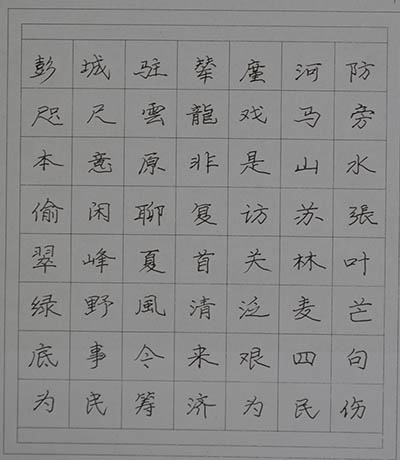 彭城驻辇廑河防
咫尺雲龍戏马旁
本意原非是山水
偷闲聊复访苏張
翠峰夏首关林叶
绿野風清泛麦芒
底事今来艰四句
为民筹济为民伤